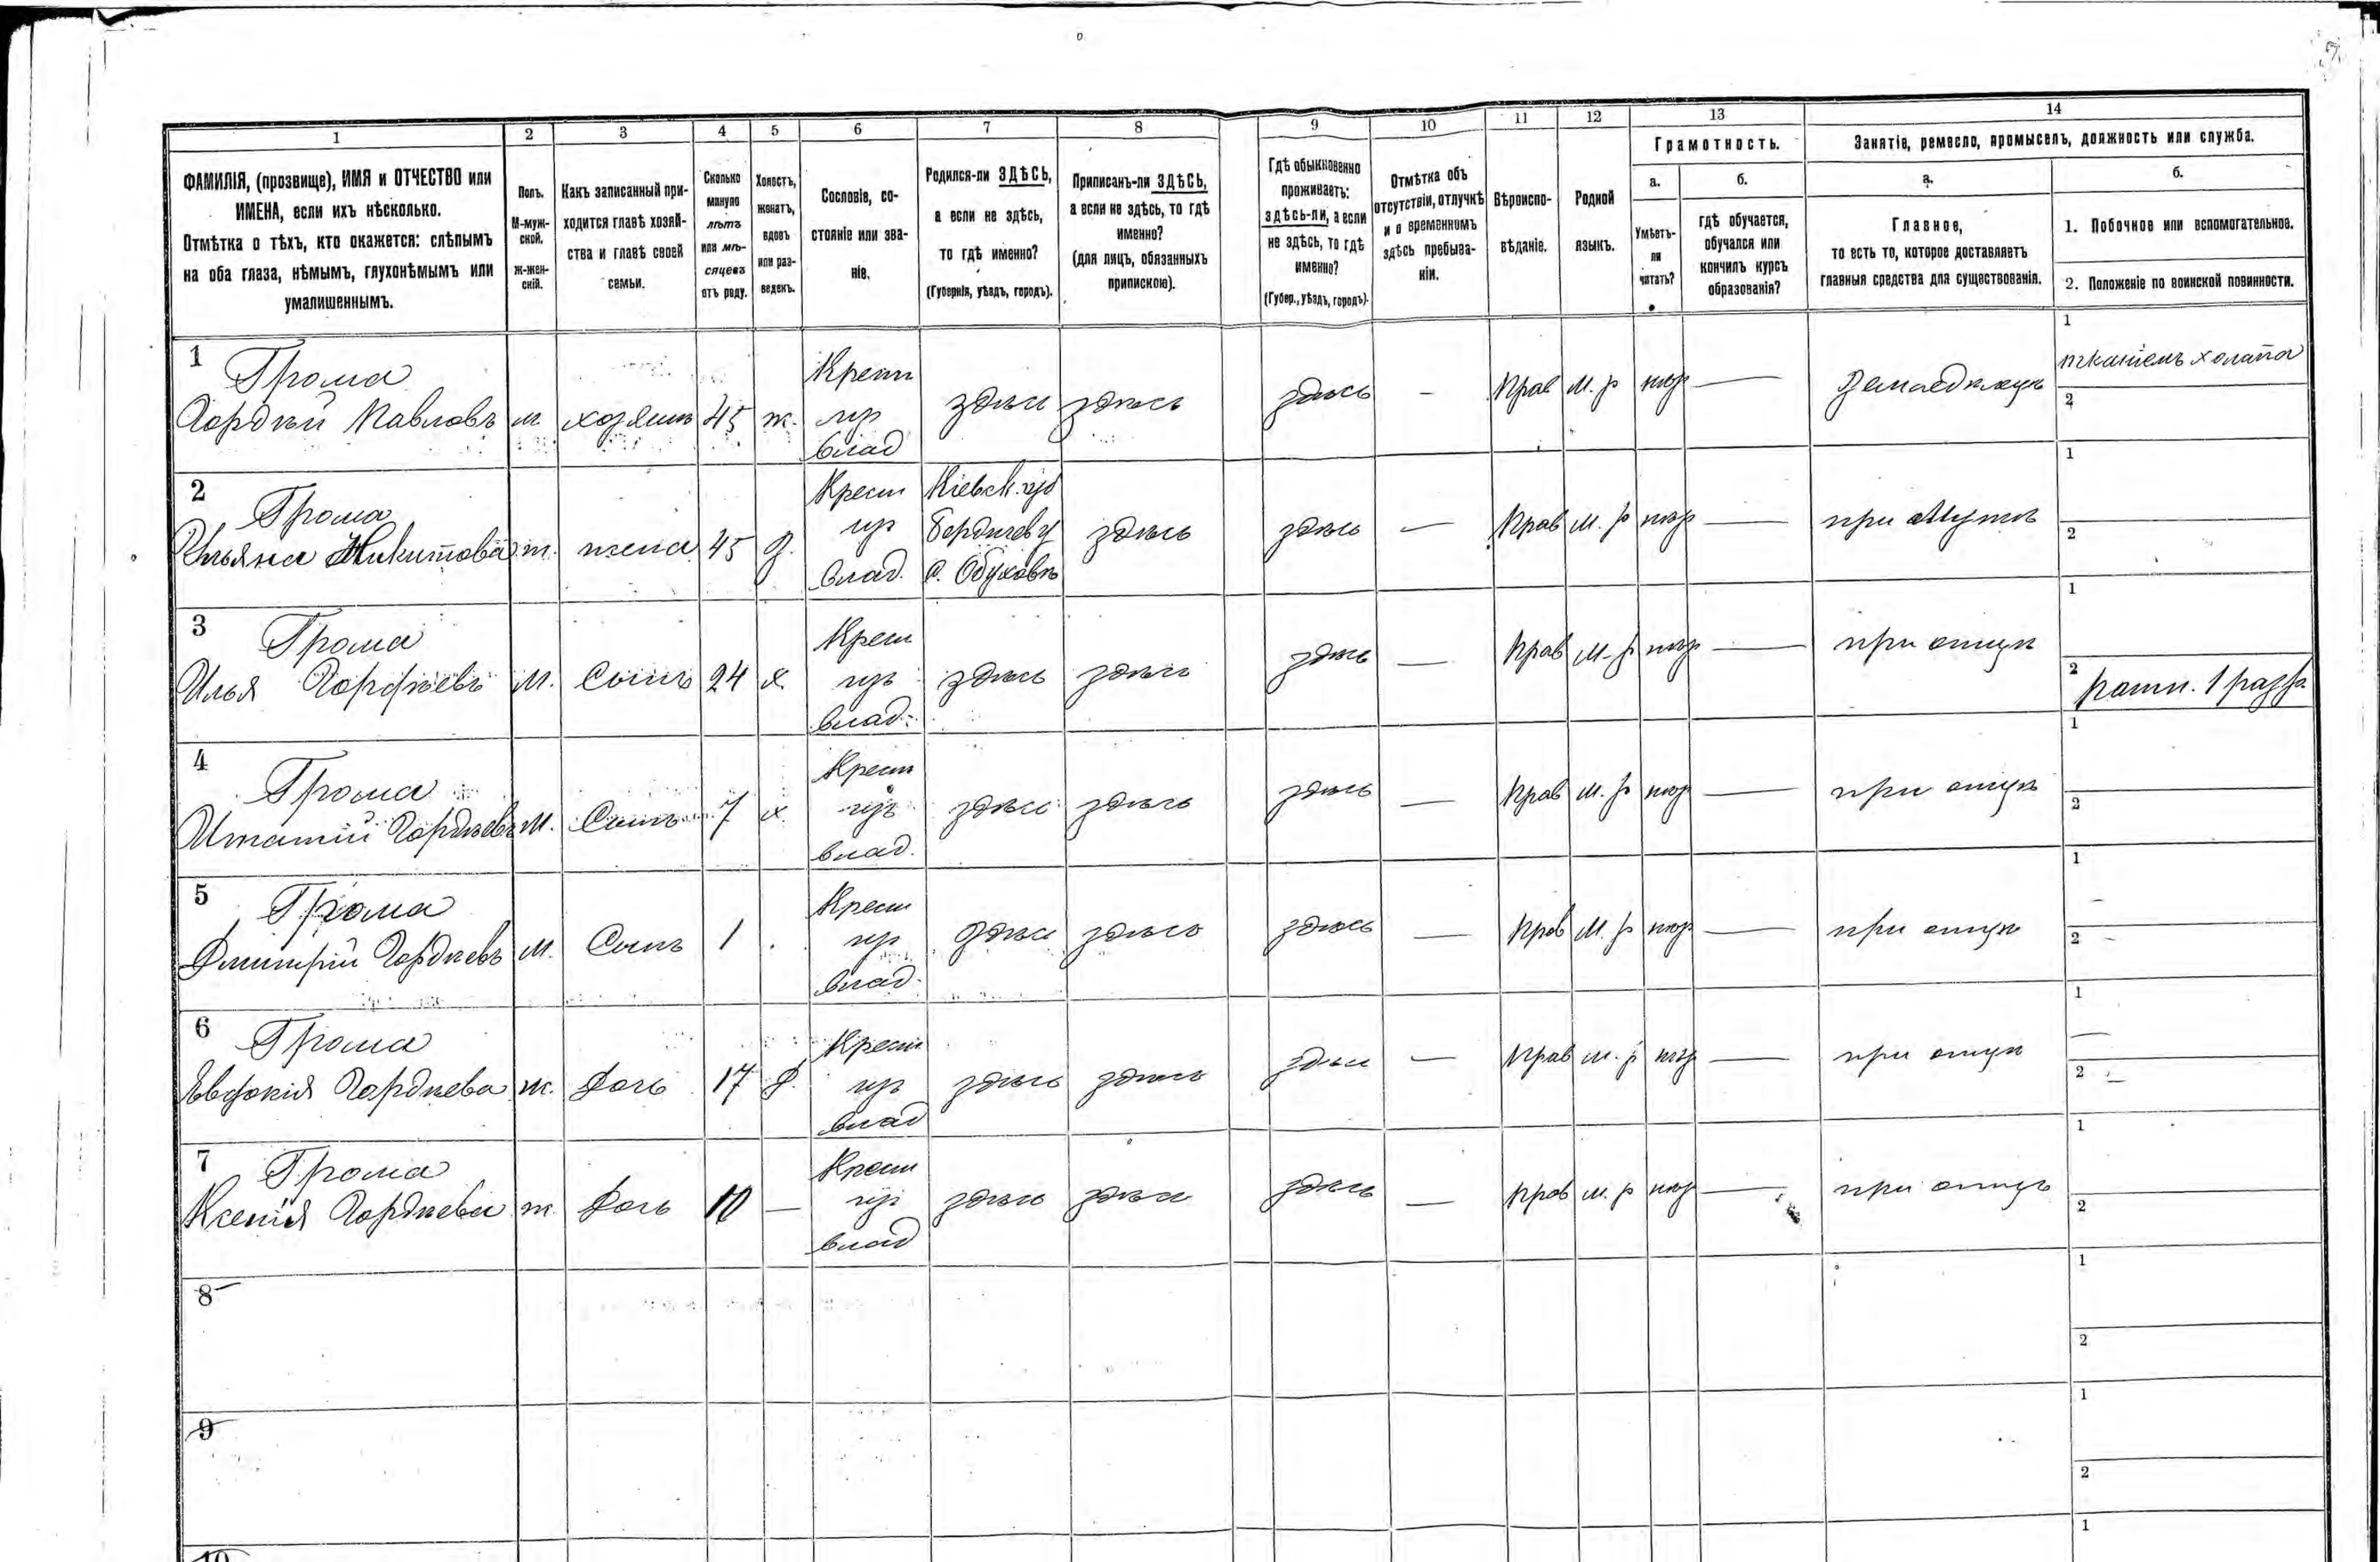 1 2 3 4 5 6 7 8 9 10 11 12 13 14
ФАМИЛІЯ, (прозвище), ИМЯ и ОТЧЕСТВО или
ИМЕНА, если ихъ нѣсколько.
Отмѣтка о тѣхъ, кто окажется: слѣпымъ
на оба глаза, нѣмымъ, глухонѣмымъ или
умалишеннымъ.
Полъ.
М-муж-
ской.
Ж-жен-
скій.
Какъ записанный при-
ходится главѣ хозяй-
ства и главѣ своей
семьи.
Сколько
минуло
лѣтъ
или мѣ-
сяцевъ
отъ роду.
Холостъ,
женатъ,
вдовъ
или раз-
веденъ.
Сословіе, со-
стояніе или зва-
ніе.
Родился-ли ЗДѢСЬ,
а если не здѣсь,
то гдѣ именно?
(Губернія, уѣздъ, городъ).
Приписанъ-ли ЗДѢСЬ,
а если не здѣсь, то гдѣ
именно?
(для лицъ, обязанныхъ
припискою).
Гдѣ обыкновенно
проживаетъ:
здѣсь-ли, а если
не здѣсь, то гдѣ
именно?
(Губер., уѣздъ, городъ).
Отмѣтка объ
отсутствіи, отлучкѣ
и о временномъ
здѣсь пребыва-
ніи.
Вѣроиспо-
вѣданіе.
Родной
языкъ.
Грамотность.
а.
Умѣетъ-
ли
читать?
б.
гдѣ обучается,
обучался или
кончилъ курсъ
образованія?
Занятіе, ремесло, промыселъ, должность или служба.
а.
Главное,
то есть то, которое доставляетъ
главныя средства для существованія.
б.
1. Побочное или вспомогательное.
2. Положеніе по воинской повинности.
1
Грома
Гордѣй Павловъ м хозяинъ 45 ж. Крест
из
влад здѣсь здѣсь здѣсь - Прав м. р —
1
2
2
Грома
Ульяна Никитова ж. жена 45 Крест
из
влад. Кіевск. губ
Бердичев у
с. Обуховъ здѣсь здѣсь — Прав м. р — при мужѣ
1
2
3
Грома
Илья Гордѣевъ м. Сынъ 24 х. Крест
из
влад. здѣсь здѣсь здѣсь — Прав м. р — при отцѣ
1
2 ратн. 1 разр.
4
Грома
Игнатій Гордѣевъ м. Сынъ 7 х Крест
из
влад. здѣсь здѣсь здѣсь — Прав м. р — при отцѣ
1
2
5
Грома
Дмитрій Гордѣевъ м. Сынъ 1 . Крест
из
влад. здѣсь здѣсь здѣсь — Прав м. р — при отцѣ
1 –
2 –
6
Грома
Евдокія Гордѣева ж. Дочь 17 Крест
из
влад здѣсь здѣсь здѣсь — Прав м. р — при отцѣ
1 —
2 —
7
Грома
Ксенія Гордѣева ж. Дочь 10 — Крест
из
влад здѣсь здѣсь здѣсь — Прав м. р — при отцѣ
1
2
8
1
2
9
1
2
10
1